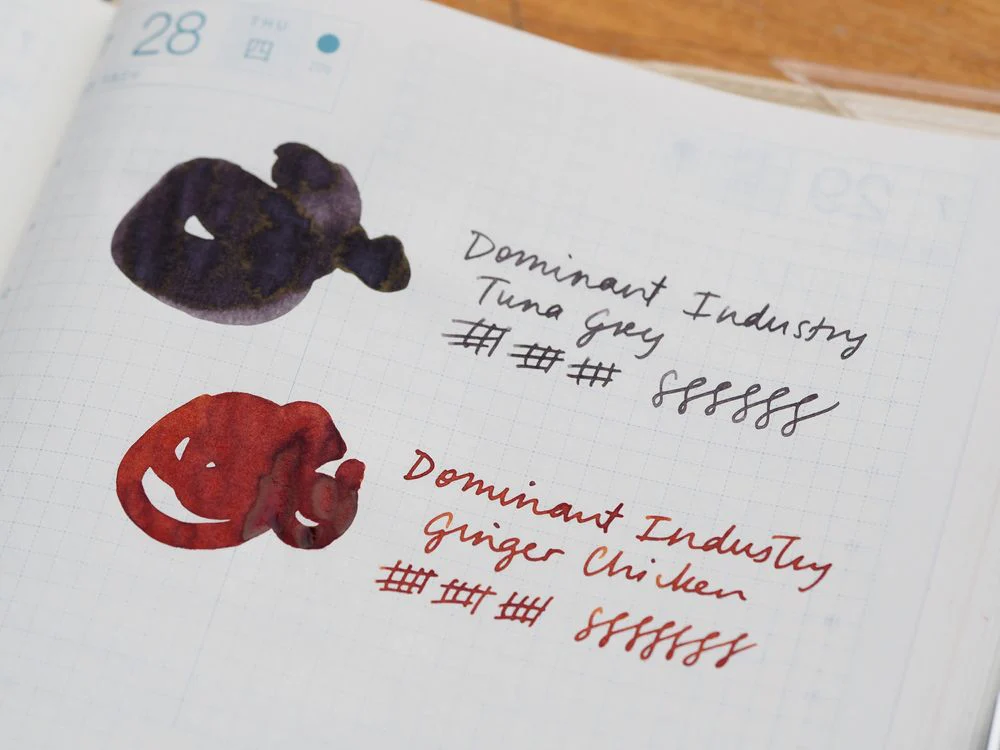 28
THU
四
Dominant Industry
Tuna Grey
Dominant Industry
Ginger Chicken
29